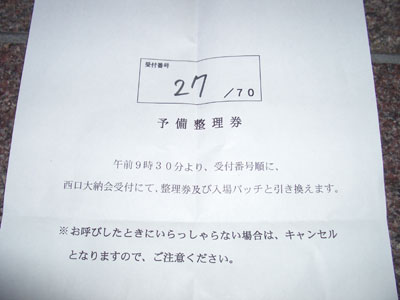 受付番号
27 /70
予備整理券
午前9時30分より、受付番号順に、
西口大納会受付にて、整理券及び入場バッチと引き換えます。
※お呼びしたときにいらっしゃらない場合は、キャンセル
となりますので、ご注意ください。